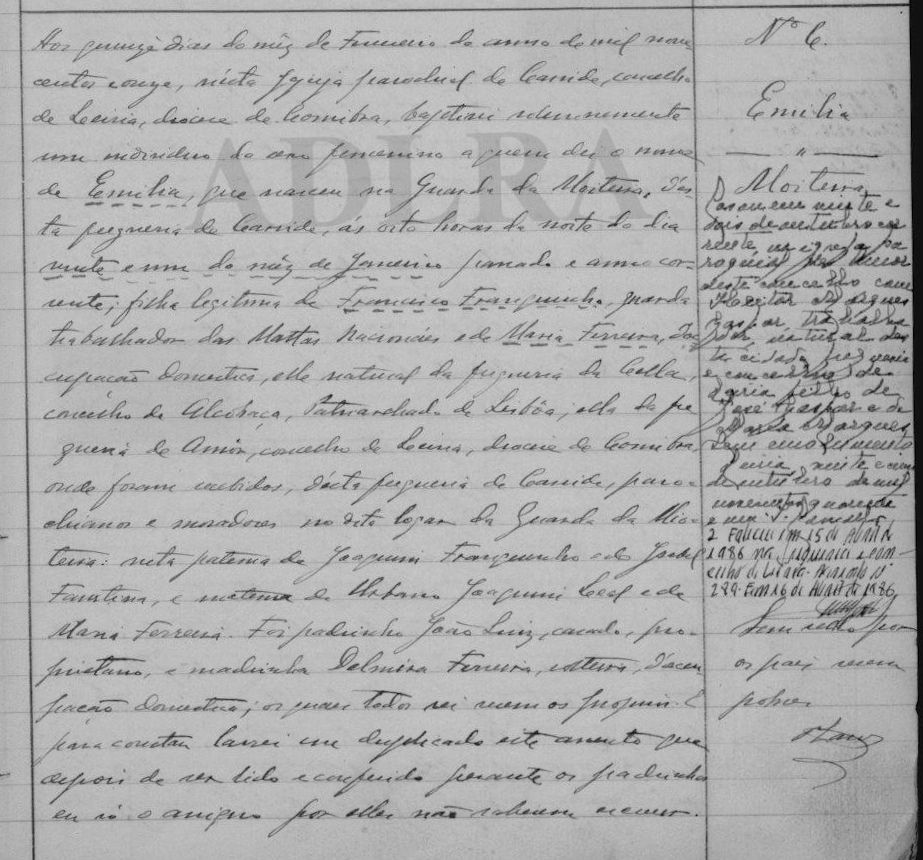 Aos quinze dias do mêz de Fevereiro do anno de mil nove
centos e onze, n'esta Igreja parochial de Carvide, concelho
de Leiria, diocese de Coimbra, baptisei solemnemente
um individuo do sexo femenino a quem dei o nome
de Emilia, que nasceu na Guarda da Moiteira, d'es-
ta freguesia de Carvide, ás oito horas da noite do dia
vinte e um do mêz de Janeiro passado e anno cor-
rente, filha legitima de Francisco Franquinho, guarda
trabalhador das Mattas Nacionáes e de Maria Ferreira, d'oc-
cupação domestica, elle natural da freguesia da Cella,
concelho de Alcobaça, Patriarchado de Lisbôa; ella da fre
guesia de Amôr, concelho de Leiria, diocese de Coimbra,
onde foram recebidos, d'esta freguesia de Carvide, paro-
chianos e moradores no dito logar da Guarda da Moi-
teira: neta paterna de Joaquim Franquinho e de Isabel
Faustina, e materna de Urbano Joaquim Leal e de
Maria Ferreira. Foi padrinho João Luiz, casado, pro-
prietario, e madrinha Delmira Ferreira, solteira, d'occu-
pação domestica; os quaes todos sei serem os proprios. E
para constar lavrei em duplicado este assento que
depois de ser lido e conferido perante os padrinhos
eu só o assigno por elles não saberem escrever.
Nº 6.
Emilia
"
Moiteira
Casou em vinte e
dois de outubro cor
rente na igreja pa
roquial de Amor
deste concelho com
Heitor Marques
Gaspar, trabalha
dor, natural des
ta cidade freguesia
e concelho de
Leiria filho de
José Gaspar e de
Maria Marques
Leiria vinte e cinco
de outubro de mil
novecentos quarenta
e um.
2 Faleceu em 15 de Abril de
1986 na freguesia e con-
celho de Leiria. Assento nº
299. Em 16 de Abril de 1986
Sem sello por
os paes serem
pobres